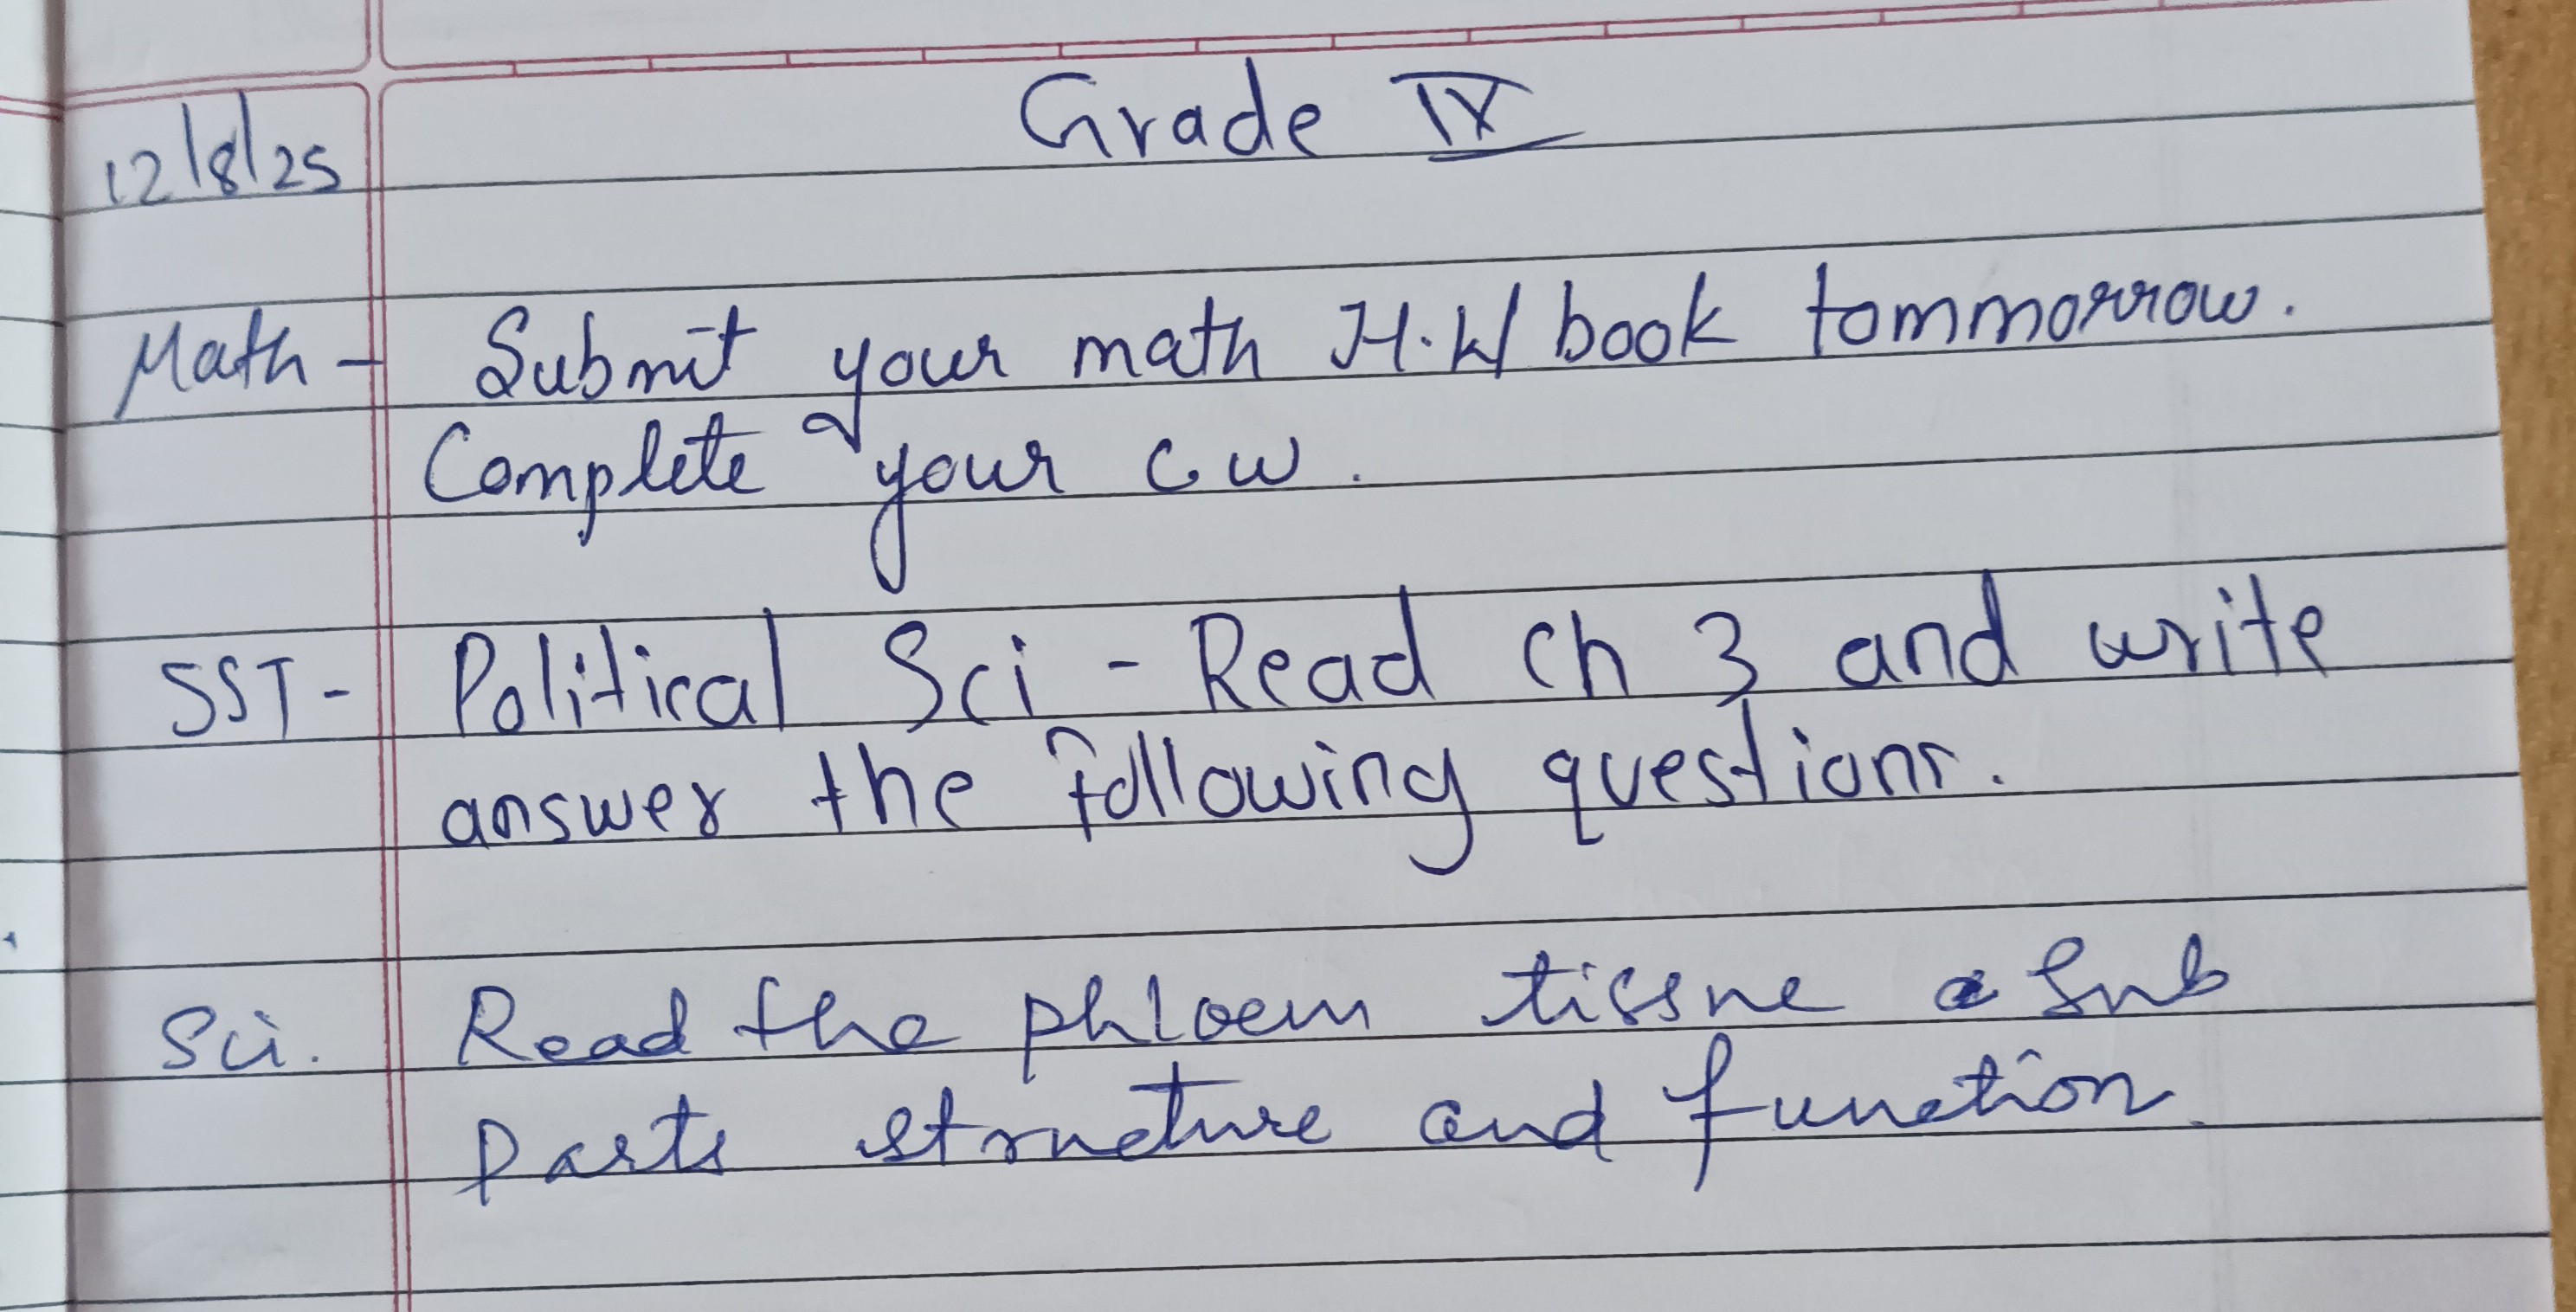 Grade IX
12/8/25
Math - Submit your math H.W book tommorrow.
Complete your cw.
SST - Political Sci - Read Ch 3 and write
answer the following questions.
Sci. Read the phloem tissue Sub
parts structure and function.